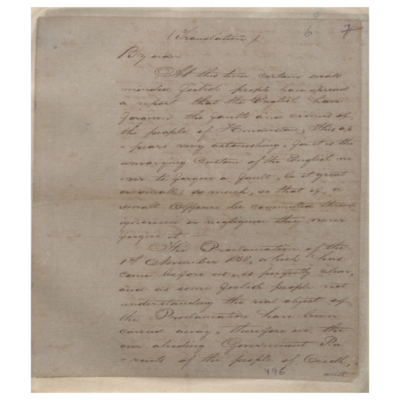 (Translation).
6 7
By order
At this time certain weak
minded foolish people have spread
a report that the English have
forgiven the faults and crimes of
the people of Hindustan, this ap
pears very astonishing, for it is the
unvarying custom of the English ne
ver to forgive a fault, be it great
or small; so much, so that if a
small offence be committed thro
ignorance or negligence they never
forgive it.
The Proclamation of the
1st November 1858, which has
come before us is perfectly clear,
and as some foolish people not
understanding the real object of
the Proclamation have been
carried away, therefore we the
ever abiding Government Pa
rents of the people of Oude,
196